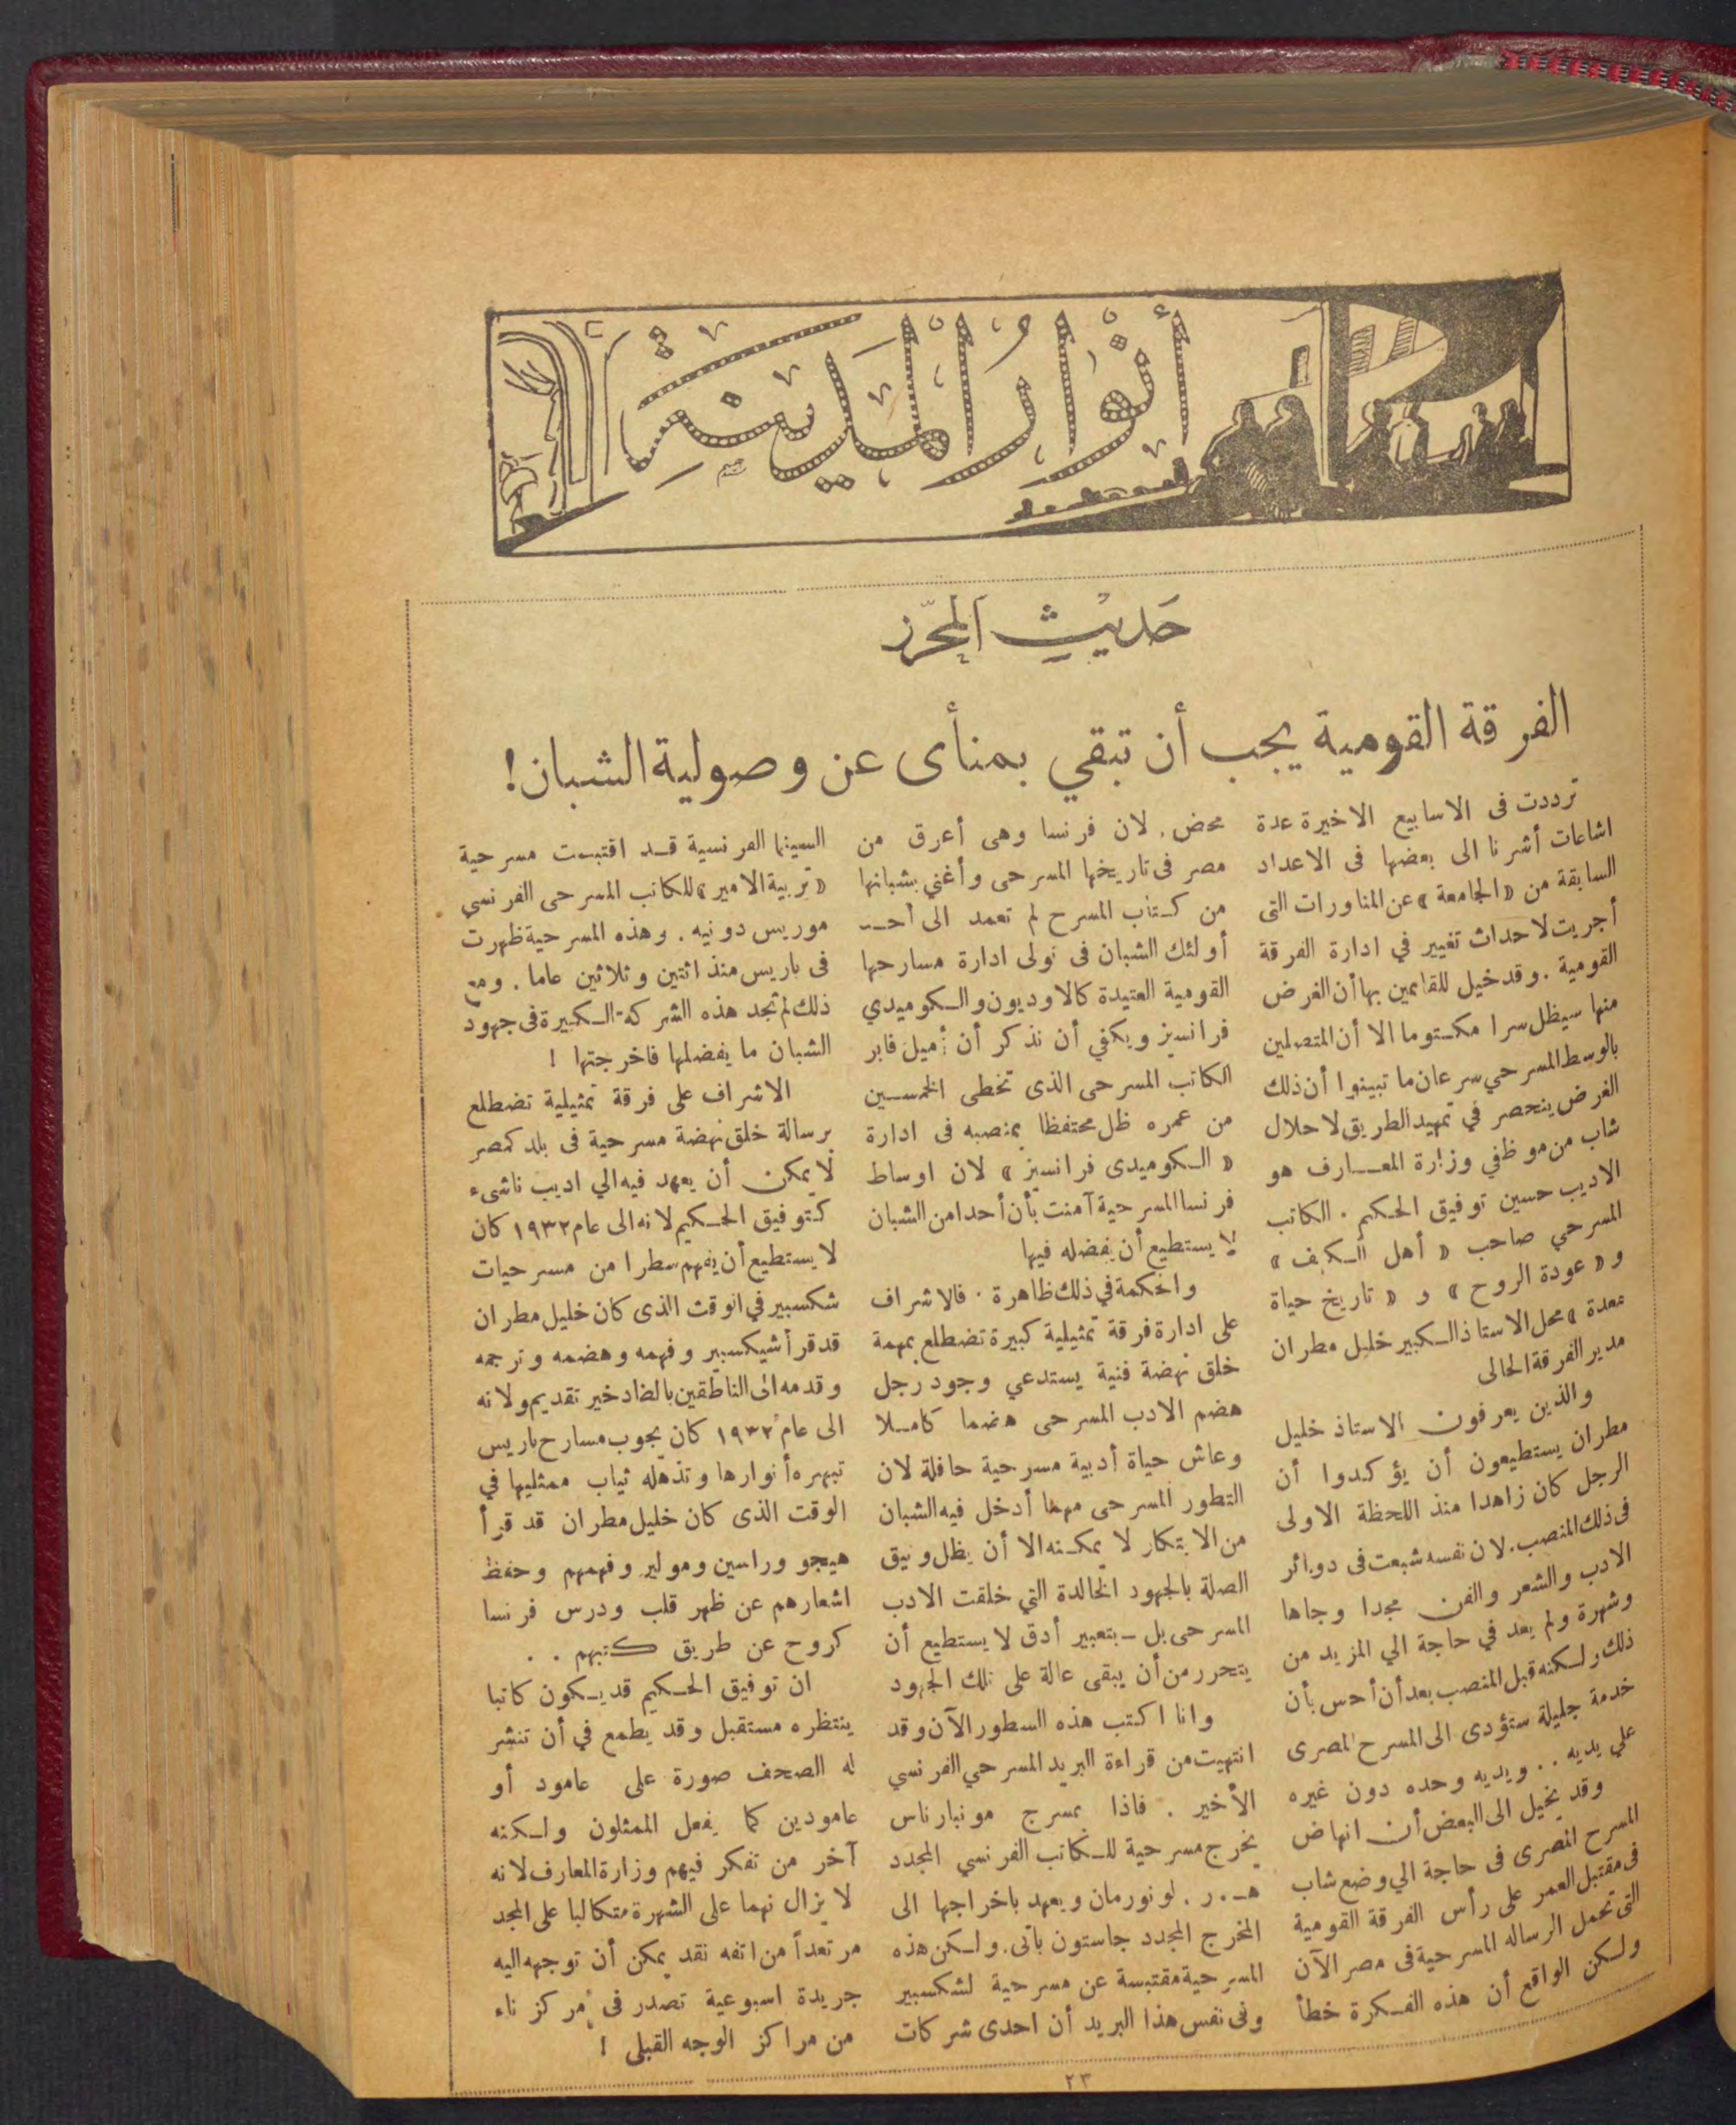 أنوار المدينة
حديث المحرر
الفرقة القومية يجب أن تبقي بمنأى عن وصولية الشبان!
ترددت فى الاسابيع الاخيرة عدة
اشاعات أشرنا الى بعضها فى الاعداد
السابقة من «الجامعة» عن المناورات التى
أجريت لاحداث تغيير في ادارة الفرقة
القومية . وقد خيل للقائمين بها أن الغرض
منها سيظل سرا مكتوما الا أن المتصلين
بالوسط المسرحي سرعان ما تبينوا أن ذلك
الغرض ينحصر في تمهيد الطريق لاحلال
شاب من موظفي وزارة المعارف هو
الاديب حسين توفيق الحكيم . الكاتب
المسرحي صاحب « أهل الكهف »
و « عودة الروح » و « تاريخ حياة
معدة » محل الاستاذ الكبير خليل مطران
مدير الفرقة الحالى
والذين يعرفون الاستاذ خليل
مطران يستطيعون أن يؤكدوا أن
الرجل كان زاهدا منذ اللحظة الاولى
فى ذلك المنصب . لان نفسه شبعت فى دوائر
الادب والشعر والفن مجدا وجاها
وشهرة ولم يعد في حاجة الي المزيد من
ذلك ولكنه قبل المنصب بعد أن أحس بأن
خدمة جليلة ستؤدى الى المسرح المصرى
علي يديه . . ويديه وحده دون غيره
وقد يخيل الى البعض أن انهاض
المسرح المصرى فى حاجة الي وضع شاب
فى مقتبل العمر على رأس الفرقة القومية
التى تحمل الرساله المسرحية فى مصر الآن
ولكن الواقع أن هذه الفكرة خطأ
محض . لان فرنسا وهى أعرق من
مصر فى تاريخها المسرحى وأغني بشبانها
من كتاب المسرح لم تعمد الى أحد
أولئك الشبان فى تولى ادارة مسارحها
القومية العتيدة كالاوديون والكوميدي
فرانسيز ويكفي أن نذكر أن أميل فابر
الكاتب المسرحى الذى تخطى الخمسين
من عمره ظل محتفظا بمنصبه فى ادارة
« الكوميدى فرانسيز » لان اوساط
فرنسا المسرحية آمنت بأن أحدا من الشبان
لا يستطيع أن يفضله فيها
والحكمة في ذلك ظاهرة . فالاشراف
على ادارة فرقة تمثيلية كبيرة تضطلع بمهمة
خلق نهضة فنية يستدعي وجود رجل
هضم الادب المسرحى هضما كاملا
وعاش حياة أدبية مسرحية حافلة لان
التطور المسرحى مهما أدخل فيه الشبان
من الابتكار لا يمكنه الا أن يظل وثيق
الصلة بالجهود الخالدة التي خلقت الادب
المسرحى بل - بتعبير أدق لا يستطيع أن
يتحرر من أن يبقى عالة على تلك الجهود
وانا اكتب هذه السطور الآن وقد
انتهيت من قراءة البريد المسرحي الفرنسي
الأخير . فاذا بمسرح مونبارناس
يخرج مسرحية للكاتب الفرنسي المجدد
هـ . ر . لونورمان ويعهد باخراجها الى
المخرج المجدد جاستون باتى . ولكن هذه
المسرحية مقتبسة عن مسرحية لشكسبير
وفى نفس هذا البريد أن احدى شركات
السينما الفرنسية قد اقتبست مسرحية
« تربية الامير » للكاتب المسرحى الفرنسي
موريس دونيه . وهذه المسرحية ظهرت
فى باريس منذ اثنتين وثلاثين عاما . ومع
ذلك لم تجد هذه الشركة الكبيرة فى جهود
الشبان ما يفضلها فاخرجتها !
الاشراف على فرقة تمثيلية تضطلع
برسالة خلق نهضة مسرحية فى بلد كمصر
لا يمكن أن يعهد فيه الي اديب ناشىء
كتوفيق الحكيم لانه الى عام ١٩٣٢ كان
لا يستطيع أن يفهم سطرا من مسرحيات
شكسبير في الوقت الذى كان خليل مطران
قد قرأ شيكسبير وفهمه وهضمه وترجمه
وقدمه الى الناطقين بالضاد خير تقديم ولانه
الى عام ١٩٣٢ كان يجوب مسارح باريس
تبهره أنوارها وتذهله ثياب ممثليها في
الوقت الذى كان خليل مطران قد قرأ
هيجو وراسين ومولير وفهمهم وحفظ
اشعارهم عن ظهر قلب ودرس فرنسا
كروح عن طريق كتبهم . .
ان توفيق الحكيم قد يكون كاتبا
ينتظره مستقبل وقد يطمع في أن تنشر
له الصحف صورة على عامود أو
عامودين كما يفعل الممثلون ولكنه
آخر من تفكر فيهم وزارة المعارف لانه
لا يزال نهما على الشهرة متكالبا على المجد
مرتعداً من اتفه نقد يمكن أن توجهه اليه
جريدة اسبوعية تصدر فى مركز ناء
من مراكز الوجه القبلى !
٢٣